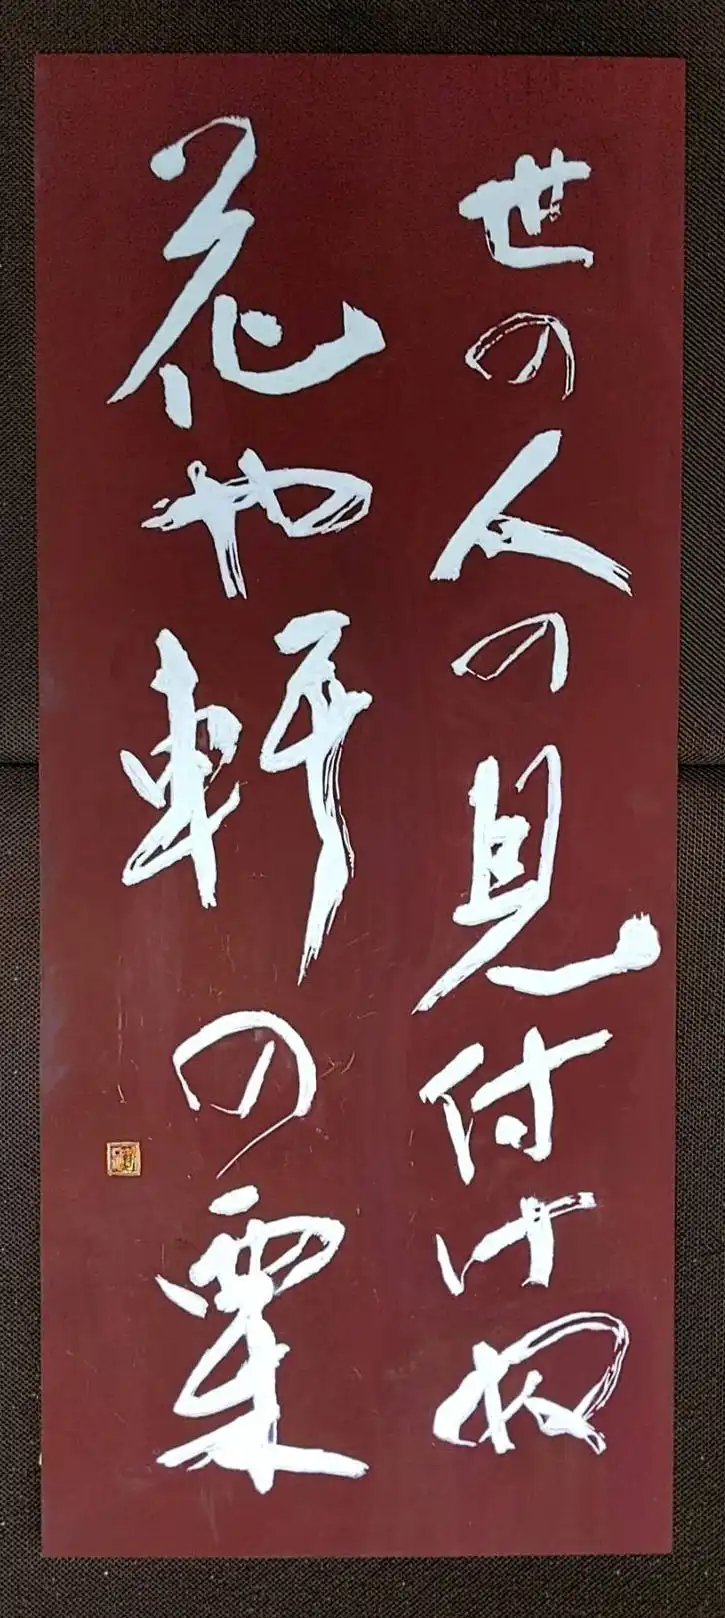 世の人の見付けぬ
花や軒の栗